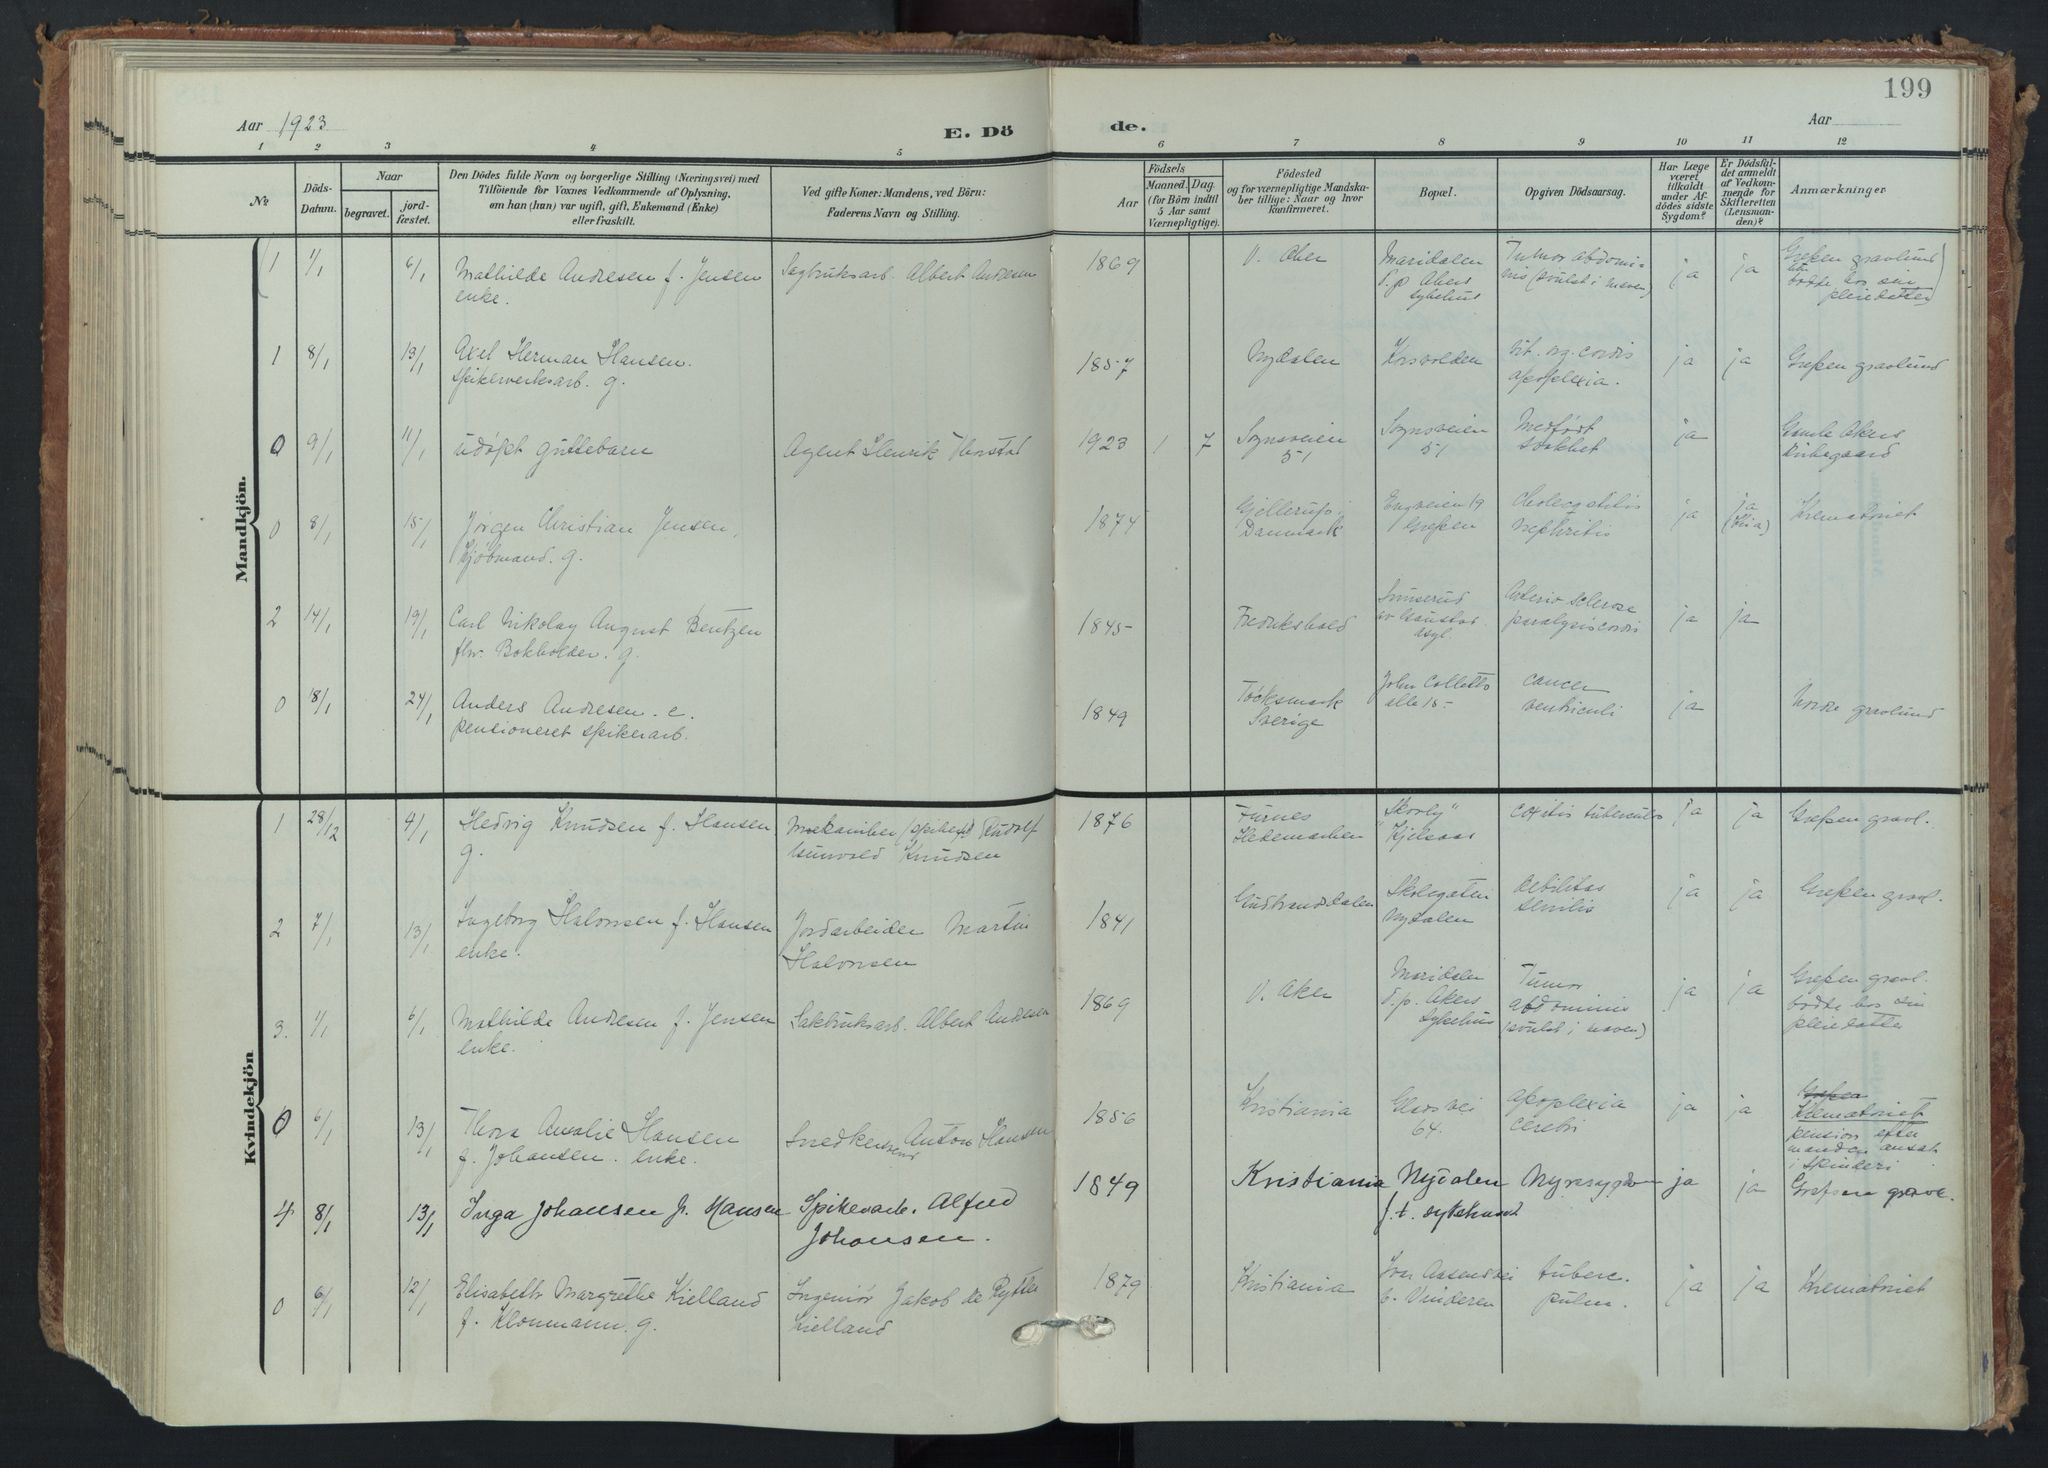 199
Aar 1923
E. Dö
de.
Aar
1 2 3 4 5 6 7 8 9 10 11 12
№
Döds-
Datum.
Naar
begravet.
jord-
fæstet.
Den Dödes fulde Navn og borgerlige Stilling (Næringsvei) med
Tilföiende for Voxnes Vedkommende af Oplysning,
om han (hun) var ugift, gift, Enkemand (Enke)
eller fraskilt.
Ved gifte Koner: Mandens, ved Börn:
Faderens Navn og Stilling.
Aar
Födsels
Maaned. Dag.
(for Börn indtil
5 Aar samt
Værnepligtige).
Födested
og for værnepligtige Mandska-
ber tillige: Naar og hvor
konfirmeret.
Bopæl.
Opgiven Dödsaarsag.
Har Læge
været
tilkaldt
under Af-
dödes sidste
Sygdom?
Er Dödsfal-
det anmeldt
af Vedkom-
mende for
Skifteretten
(Lensman-
den)?
Anmærkninger
Mandkjön.
1 1/1 6/1 Mathilde Andresen f. Jensen Sagbruksarb. Albert Andresen 1869 V. Aker Maridalen Tumor abdomi- ja ja Grefsen gravlund
enke. d. på Akers nis (svulst i maven) bodde hos sin
sykehus pleiedatter
1 8/1 13/1 Axel Herman Hansen. 1857 Nydalen Korsvolden vit. org. cordis ja ja Grefsen gravlund
spikerverksarb. g. apoplexia.
0 9/1 11/1 udøpt guttebarn Agent Henrik Thorstad 1923 1 7 Sognsveien Sognsveien Medfødt ja Gamle Akers
51 51 svakhet kirkegaard
0 8/1 15/1 Jørgen Christian Jensen, 1874 Gjellerup i Engveien 19 Cholecystitis ja ja Krematoriet
Kjøbmand. g. Danmark Grefsen nephritis (Kria)
2 14/1 19/1 Carl Nikolay August Bentzen 1845 Fredrikshald Arterio sclerose ja ja
fhv. Bokholder. g. paralysis cordis
asyl.
0 18/1 24/1 Anders Andresen. e. 1849 Töcksmark John Colletts cancer ja Nordre gravlund
pensioneret spikerarb. Sverige alle 15 ventriculi
Kvindekjön
1 28/12 4/1 Hedvig Knudsen f. Hansen Mekaniker (spikerv) Rudolf 1876 Furnes "Skovly" Coxitis tuberculos ja ja Grefsen gravl.
g. Gunvald Knudsen Hedemarken Kjelsaas
2 7/1 13/1 Ingeborg Halvorsen f. Hansen Jordarbeider Martin 1841 Gudbrandsdalen Skolegaten debilitas ja ja Grefsen gravl.
enke. Halvorsen Nydalen senilis
3. 1/1 6/1 Mathilde Andresen f. Jensen Sakbruksarb. Albert Andresen 1869 V. Aker Maridalen Tumor ja ja Grefsen gravl.
enke. d. p. Akers abdominis bodde hos sin
sykehus (svulst i maven) pleiedatter
0 6/1 13/1 Thora Amalie Hansen Snedkersvend Anton Hansen 1856 Kristiania Glads vei apoplexia ja ja Grefsen
f. Johansen. enke. 64. cerebri Krematoriet
pension efter
manden ansat
i spinderi
4 8/1 13/1 Inga Johansen f. Hansen Spikerarb. Alfred 1849 Kristiania Nydalen Nyresygdom ja ja Grefsen gravl.
Johansen. f. t. sykehuset
0 6/1 12/1 Elisabeth Margrethe Kielland Ingeniør Jakob de Rytter 1879 Kristiania Ivar Aasens vei tuberc. ja ja Krematoriet
f. Klonmann. g. Kielland 6. Vinderen pulm.